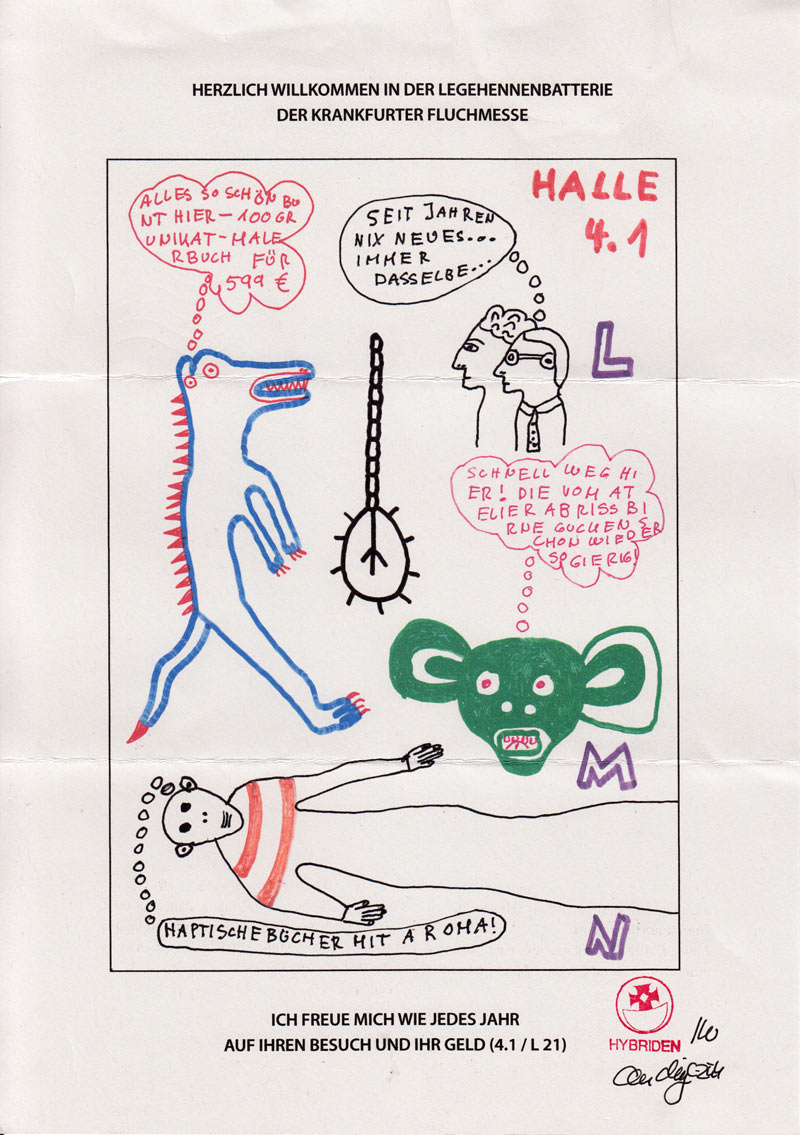 HERZLICH WILLKOMMEN IN DER LEGEHENNENBATTERIE
DER KRANKFURTER FLUCHMESSE
ALLES SO SCHÖN BU
NT HIER – 100 GR
UNIKAT-MALE
RBUCH FÜR
599 €
SEIT JAHREN
NIX NEUES...
IMMER
DASSELBE...
HALLE
4.1
L
SCHNELL WEG HI
ER! DIE VOM AT
ELIER ABRISS BI
RNE GUCKEN S
CHON WIEDER
SO GIERIG!
M
HAPTISCHE BÜCHER MIT AROMA!
N
ICH FREUE MICH WIE JEDES JAHR
AUF IHREN BESUCH UND IHR GELD (4.1 / L 21)
HYBRIDEN